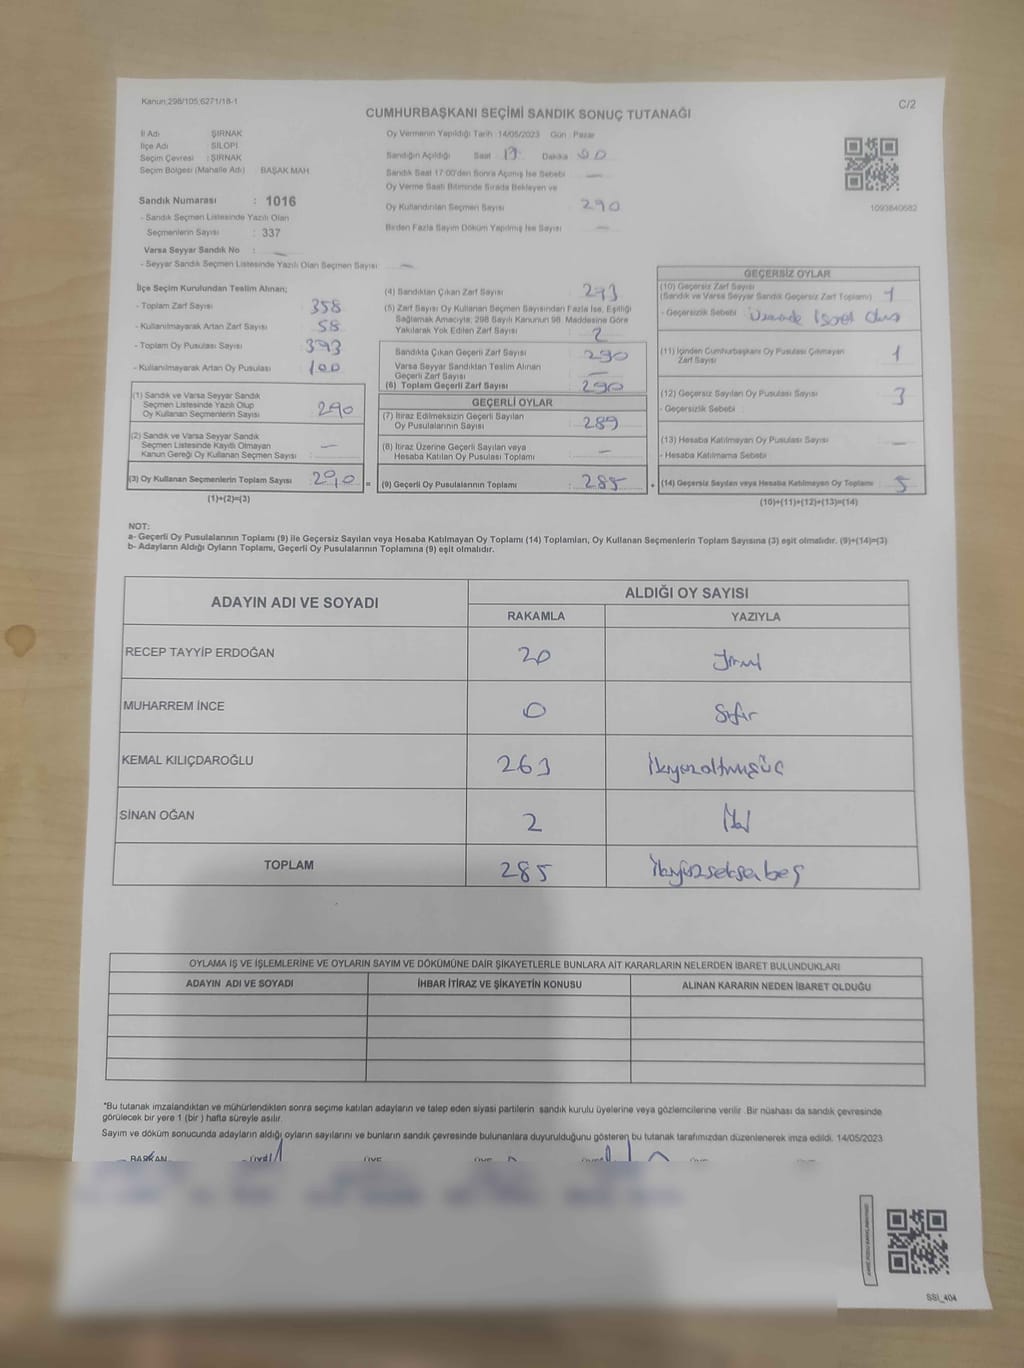 Kanun:298/105,6271/18-1
C/2
CUMHURBAŞKANI SEÇİMİ SANDIK SONUÇ TUTANAĞI
İl Adı ŞIRNAK
İlçe Adı SİLOPİ
Seçim Çevresi : ŞIRNAK
Seçim Bölgesi (Mahalle Adı) BAŞAK MAH
Sandık Numarası : 1016
- Sandık Seçmen Listesinde Yazılı Olan
Seçmenlerin Sayısı : 337
Varsa Seyyar Sandık No :
- Seyyar Sandık Seçmen Listesinde Yazılı Olan Seçmen Sayısı : —
Oy Vermenin Yapıldığı Tarih :14/05/2023 Gün : Pazar
Sandığın Açıldığı Saat Dakika
Sandık Saat 17:00'den Sonra Açımış İse Sebebi —
Oy Verme Saati Bitiminde Sırada Bekleyen ve
Oy Kullandırılan Seçmen Sayısı : 290
Birden Fazla Sayım Döküm Yapılmış İse Sayısı : —
1093840682
İlçe Seçim Kurulundan Teslim Alınan;
- Toplam Zarf Sayısı : 358
- Kullanılmayarak Artan Zarf Sayısı : 58
- Toplam Oy Pusulası Sayısı : 393
- Kullanılmayarak Artan Oy Pusulası : 100
(1) Sandık ve Varsa Seyyar Sandık
Seçmen Listesinde Yazılı Olup
Oy Kullanan Seçmenlerin Sayısı : 290
(2) Sandık ve Varsa Seyyar Sandık
Seçmen Listesinde Kayıtlı Olmayan
Kanun Gereği Oy Kullanan Seçmen Sayısı : —
(3) Oy Kullanan Seçmenlerin Toplam Sayısı : 290 =
(1)+(2)=(3)
(4) Sandıktan Çıkan Zarf Sayısı : 293
(5) Zarf Sayısı Oy Kullanan Seçmen Sayısından Fazla İse, Eşitliği
Sağlamak Amacıyla; 298 Sayılı Kanunun 98. Maddesine Göre
Yakılarak Yok Edilen Zarf Sayısı : 2
Sandıkta Çıkan Geçerli Zarf Sayısı : 290
Varsa Seyyar Sandıktan Teslim Alınan
Geçerli Zarf Sayısı : —
(6) Toplam Geçerli Zarf Sayısı : 290
GEÇERLİ OYLAR
(7) İtiraz Edilmeksizin Geçerli Sayılan
Oy Pusulalarının Sayısı : 289
(8) İtiraz Üzerine Geçerli Sayılan veya
Hesaba Katılan Oy Pusulası Toplamı : —
(9) Geçerli Oy Pusulalarının Toplamı : 285 +
GEÇERSİZ OYLAR
(10) Geçersiz Zarf Sayısı
(Sandık ve Varsa Seyyar Sandık Geçersiz Zarf Toplamı) : 1
- Geçersizlik Sebebi : Üzerinde İşaret
(11) İçinden Cumhurbaşkanı Oy Pusulası Çıkmayan
Zarf Sayısı : 1
(12) Geçersiz Sayılan Oy Pusulası Sayısı : 3
- Geçersizlik Sebebi :
(13) Hesaba Katılmayan Oy Pusulası Sayısı : —
- Hesaba Katılmama Sebebi :
(14) Geçersiz Sayılan veya Hesaba Katılmayan Oy Toplamı : 5
(10)+(11)+(12)+(13)=(14)
NOT:
a- Geçerli Oy Pusulalarının Toplamı (9) ile Geçersiz Sayılan veya Hesaba Katılmayan Oy Toplamı (14) Toplamları, Oy Kullanan Seçmenlerin Toplam Sayısına (3) eşit olmalıdır. (9)+(14)=(3)
b- Adayların Aldığı Oyların Toplamı, Geçerli Oy Pusulalarının Toplamına (9) eşit olmalıdır.
ADAYIN ADI VE SOYADI ALDIĞI OY SAYISI
RAKAMLA YAZIYLA
RECEP TAYYİP ERDOĞAN 20 Yirmi
MUHARREM İNCE 0 Sıfır
KEMAL KILIÇDAROĞLU 263 İkiyüzaltmışüç
SİNAN OĞAN 2 İki
TOPLAM 285 İkiyüzseksenbeş
OYLAMA İŞ VE İŞLEMLERİNE VE OYLARIN SAYIM VE DÖKÜMÜNE DAİR ŞİKAYETLERLE BUNLARA AİT KARARLARIN NELERDEN İBARET BULUNDUKLARI
ADAYIN ADI VE SOYADI İHBAR İTİRAZ VE ŞİKAYETİN KONUSU ALINAN KARARIN NEDEN İBARET OLDUĞU
*Bu tutanak imzalandıktan ve mühürlendikten sonra seçime katılan adayların ve talep eden siyasi partilerin sandık kurulu üyelerine veya gözlemcilerine verilir .Bir nüshası da sandık çevresinde
görülecek bir yere 1 (bir ) hafta süreyle asılır.
Sayım ve döküm sonucunda adayların aldığı oyların sayılarını ve bunların sandık çevresinde bulunanlara duyurulduğunu gösteren bu tutanak tarafımızdan düzenlenerek imza edildi. 14/05/2023
BAŞKAN
SSİ_404